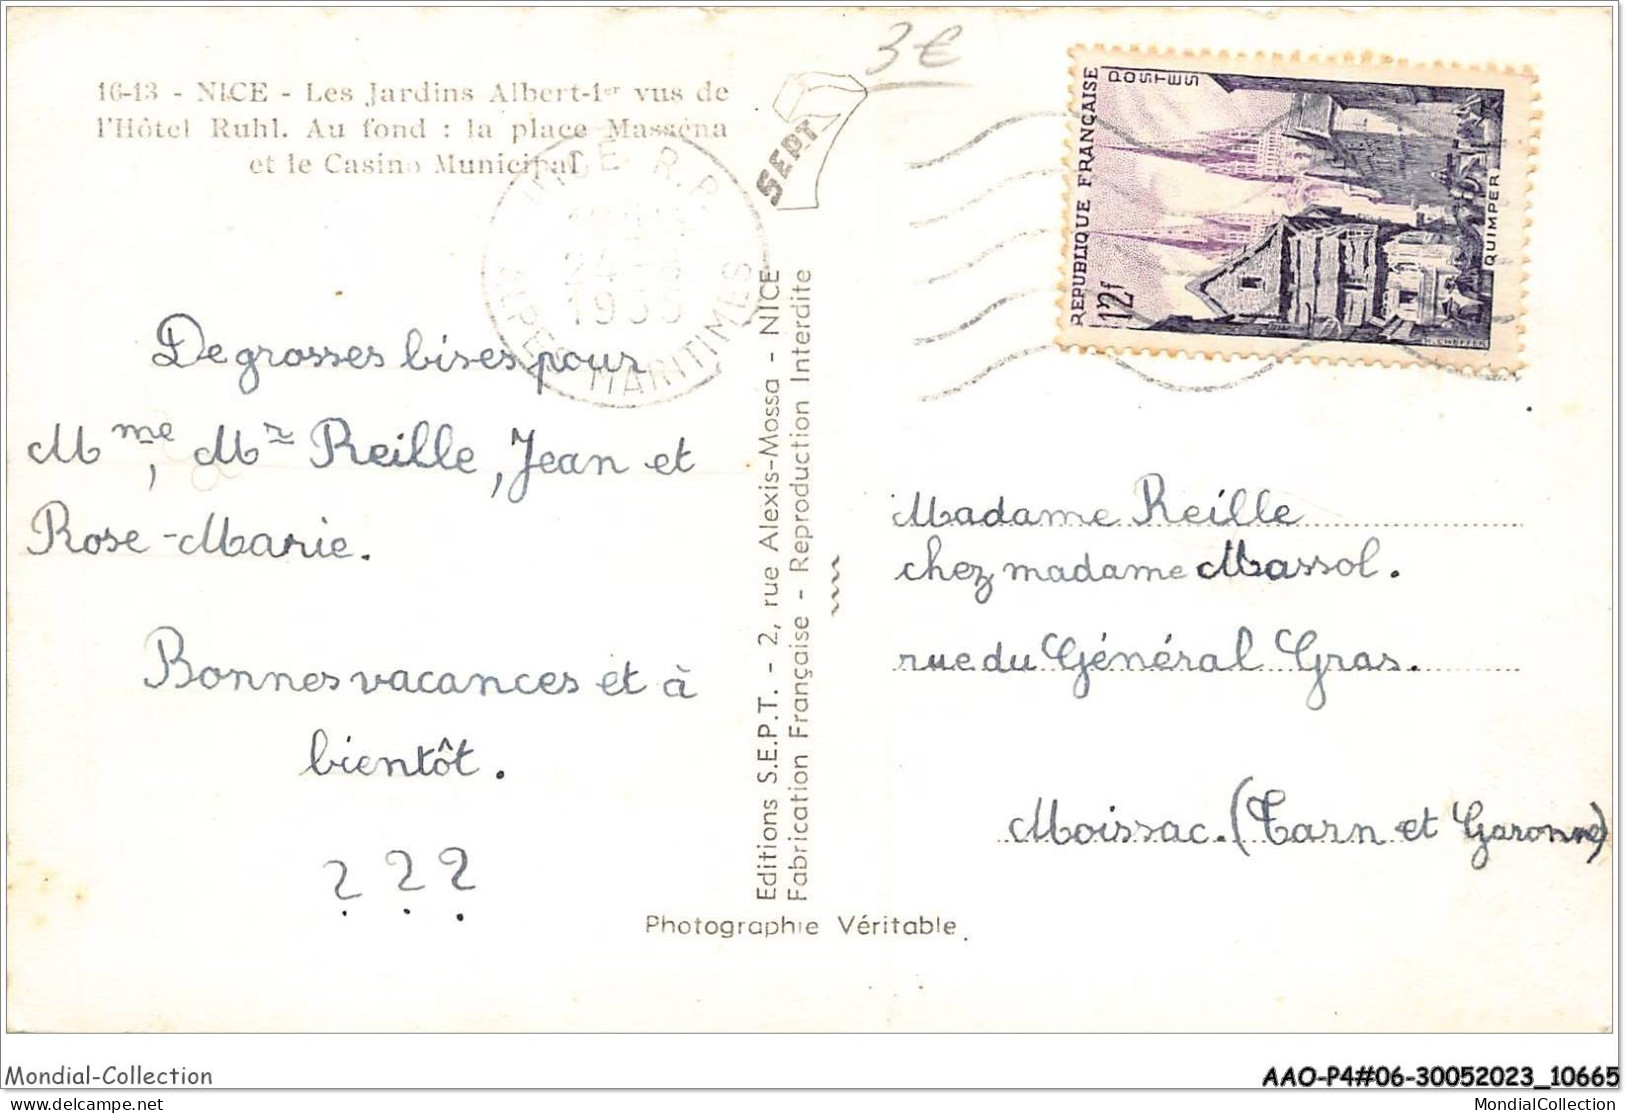 3€
16-13 - NICE - Les Jardins Albert-1er vus de
l'Hôtel Ruhl. Au fond : la place Masséna
et le Casino Municipal
SEPT
NICE R.P.
24 -8
1955
ALPES MARITIMES
REPUBLIQUE FRANÇAISE
POSTES
12f
QUIMPER
De grosses bises pour
Mme, Mr Reille, Jean et
Rose-Marie.
Bonnes vacances et à
bientôt.
? ? ?
Editions S.E.P.T. - 2, rue Alexis-Mossa - NICE
Fabrication Française - Reproduction Interdite
Photographie Véritable
Madame Reille
chez madame Massol.
rue du Général Gras.
Moissac. (Tarn et Garonne)
Mondial-Collection
AAO-P4#06-30052023_10665
delcampe.net
MondialCollection